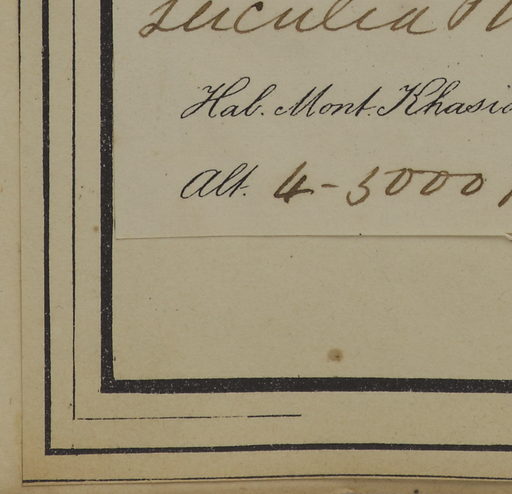 Luculia
Hab. Mont. Khasia
Alt. 4-5000